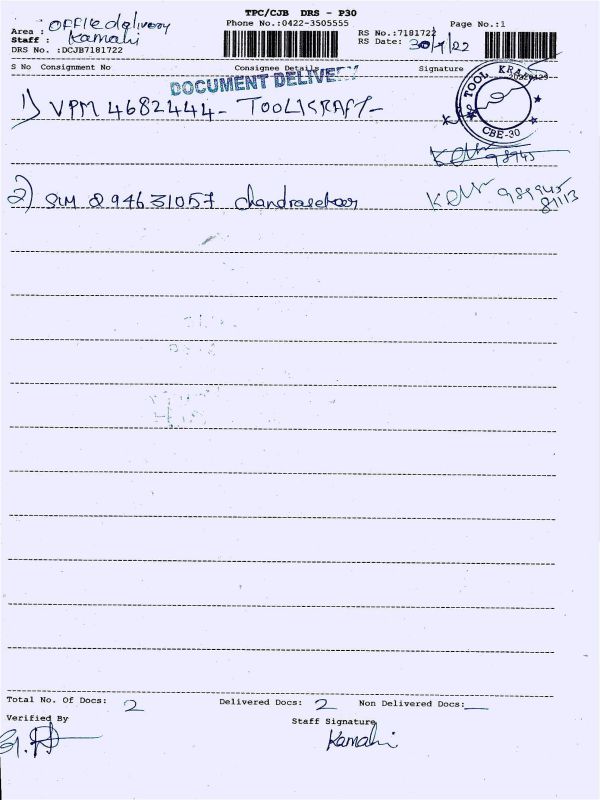 TPC/CJB DRS - P30
Area : Office delivery Phone No.:0422-3505555 Page No.:1
Staff : Kamahi RS No.:7181722
DRS No. :DCJB7181722 RS Date: 30/9/22
S No Consignment No Consignee Details Signature
DOCUMENT DELIVE
1) VPM 4682444 - TOOLKRAFT -
TOOL KRA
CBE-30
98945
2) 894631057 Chandrasekar
989945
81113
Total No. Of Docs: 2 Delivered Docs: 2 Non Delivered Docs:
Verified By Staff Signature
Kamahi